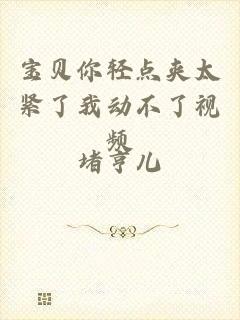 宝贝你轻点夹太
紧了我动不了视
频
堵亨儿